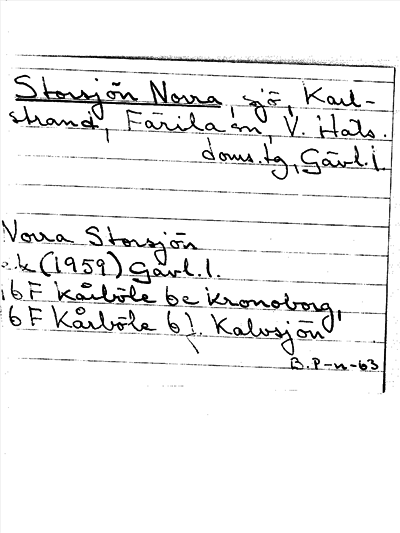 Storsjön Norra, sjö, Karl-
strand, Färila sn, V. Häls.
doms.tg, Gävl.l.
Norra Storsjön
ek (1959) Gävl.l.
16 F Kårböle 6c Kronoborg,
16 F Kårböle 6 Kalvsjön
B.P-n-63